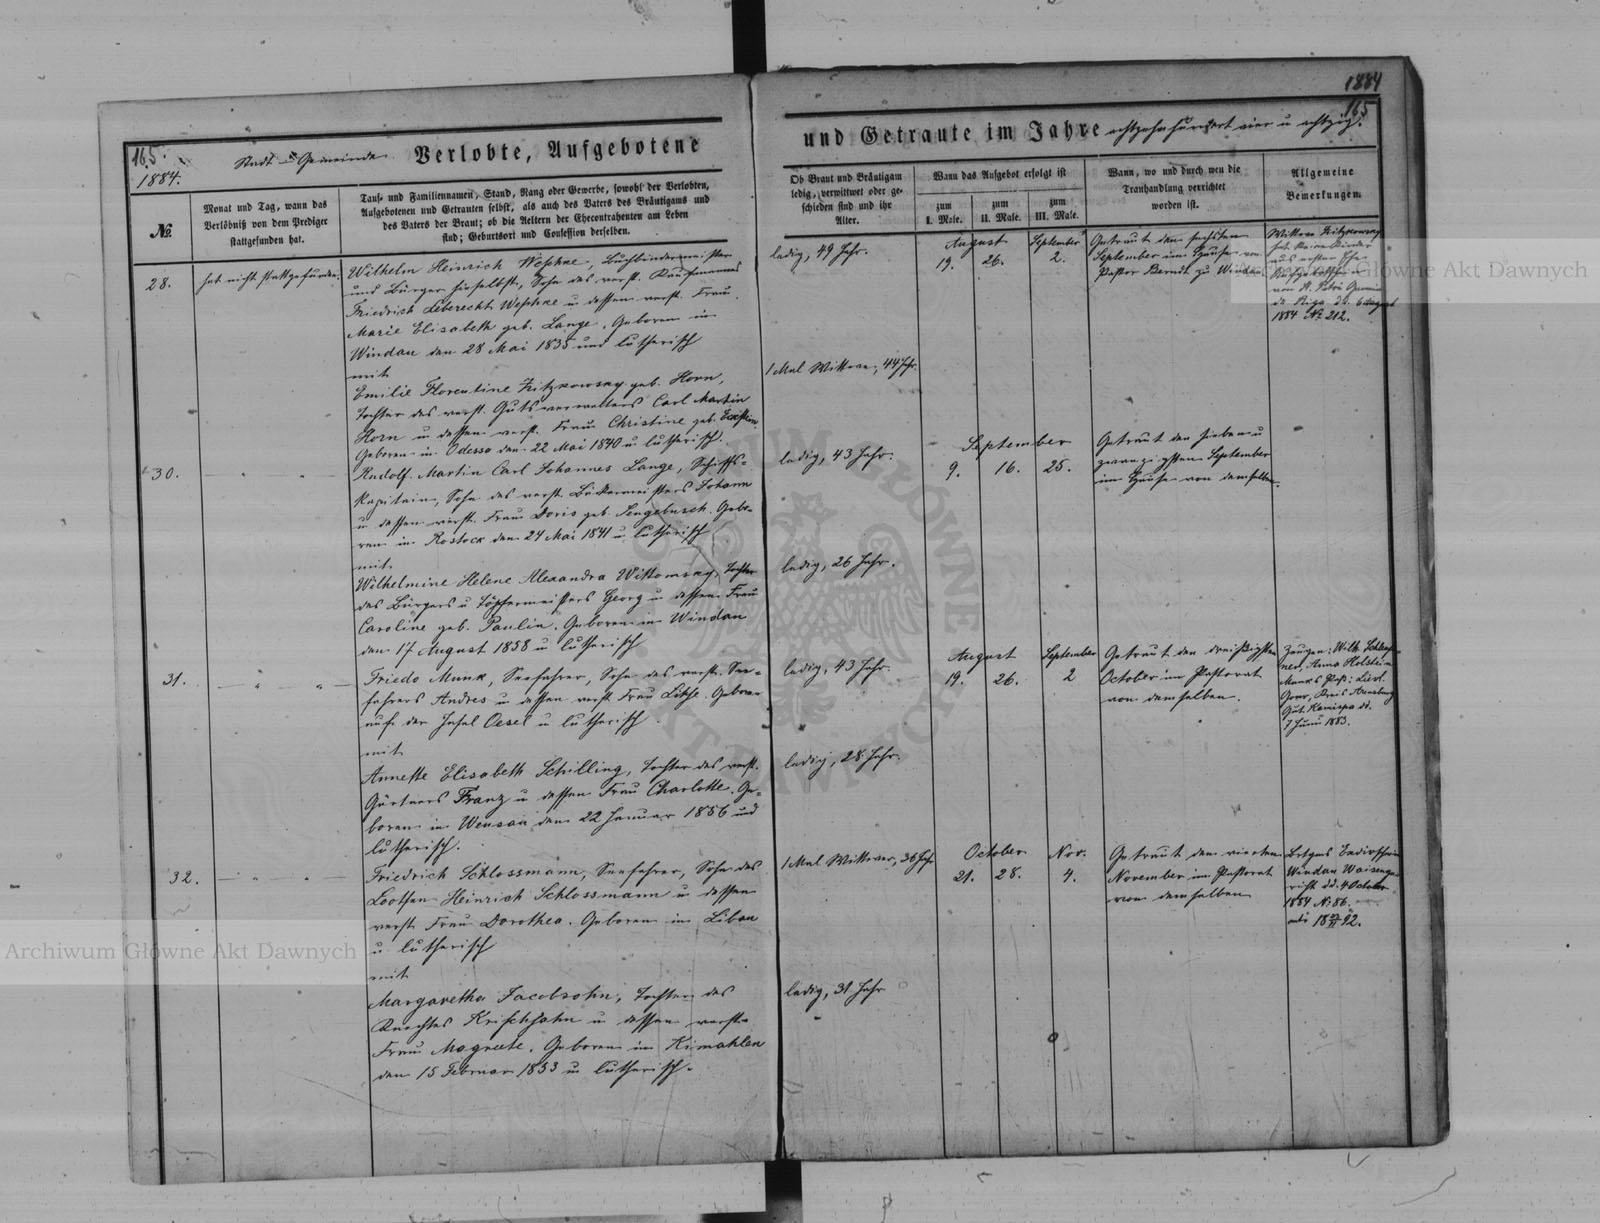 165.
1884.
Stadt - Gemeinde Verlobte, Aufgebotene
№
Monat und Tag, wann das
Verlöbniß von dem Prediger
stattgefunden hat.
Tauf- und Familiennamen, Stand, Rang oder Gewerbe, sowohl der Verlobten,
Aufgebotenen und Getrauten selbst, als auch des Vaters des Bräutigams und
des Vaters der Braut; ob die Aeltern der Ehecontrahenten am Leben
sind; Geburtsort und Confession derselben.
28.
hat nicht stattgefunden.
Wilhelm Heinrich Weschke, Buchbindermeister
und Bürger hieselbst, Sohn des verst. Kaufmannes
Friedrich Leberecht Weschke u dessen verst. Frau
Marie Elisabeth geb. Lange. Geboren in
Windau den 28 Mai 1835 und lutherisch
mit
Emilie Florentine Zitzkowsky geb. Horn,
Tochter des verst. Gutsverwalters Carl Martin
Horn u dessen verst. Frau Christine geb.
Geboren in Odessa den 22 Mai 1840 u lutherisch.
30.
Rudolf Martin Carl Johannes Lange, Schiffs-
Kapitain, Sohn des verst. Bäckermeisters Johann
u dessen verst. Frau Doris geb. Sengebusch. Gebo-
ren in Rostock den 24 Mai 1841 u lutherisch
mit
Wilhelmine Helene Alexandra Wittomsky, Tochter
des Bürgers u Töpfermeisters Georg u dessen Frau
Caroline geb. Paulin. Geboren in Windau
den 17 August 1858 u lutherisch
31.
Friedo Munk, Seefahrer, Sohn des verst. See-
fahrers Andres u dessen verst Frau Liehse. Geboren
auf der Insel Oesel u lutherisch.
mit
Annette Elisabeth Schilling, Tochter des verst.
Gärtners Franz u dessen Frau Charlotte. Ge-
boren in Wensau den 22 Januar 1856 und
lutherisch.
32.
Friedrich Schlossmann, Seefahrer, Sohn des
Lootsen Heinrich Schlossmann u dessen
verst Frau Dorothea. Geboren in Libau
u lutherisch
mit
Margaretha Jacobsohn, Tochter des
Knechtes Krischjahn u dessen verst.
Frau Magreete. Geboren in Kimahlen
den 15 Februar 1853 u lutherisch.
1884
165
und Getraute im Jahre achtzehnhundert vier u achtzig.
Ob Braut und Bräutigam
ledig, verwittwet oder ge-
schieden sind und ihr
Alter.
Wann das Aufgebot erfolgt ist
zum
I. Male.
zum
II. Male.
zum
III. Male.
Wann, wo und durch wen die
Trauhandlung verrichtet
worden ist.
Allgemeine
Bemerkungen.
ledig, 49 Jahr.
August
September
19.
26.
2.
Getraut den sechsten
September im Hause von
Pastor Berndt zu Windau
Wittwe Zitzkowsky
hat keine Kinder
aus erster Ehe.
von St. Petri Gemein
de Riga dd. 6 August
1884 № 212.
1 Mal Wittwe, 44 Jahr.
ledig, 43 Jahr.
September
9.
16.
25.
Getraut den sieben u
zwanzigsten September
im Hause von demselben.
ledig, 26 Jahr.
ledig, 43 Jahr.
August
September
19.
26.
2
Getraut den dreißigsten
October im Pastorat
von demselben.
Zeugen: Wilh.
Anna Holstein
Munks Paß: Livl.
Gouv, Kreis Arensburg
Gut
7 Juni 1883.
ledig, 28 Jahr.
1 Mal Wittwer, 36 Jahr
October
Nov.
21.
28.
4.
Getraut den vierten
November im Pastorat
von demselben
Windau Waisenge-
richt dd. 4 October
1884 № 86.
ledig, 31 Jahr
Archiwum Główne Akt Dawnych
Archiwum Główne Akt Dawnych